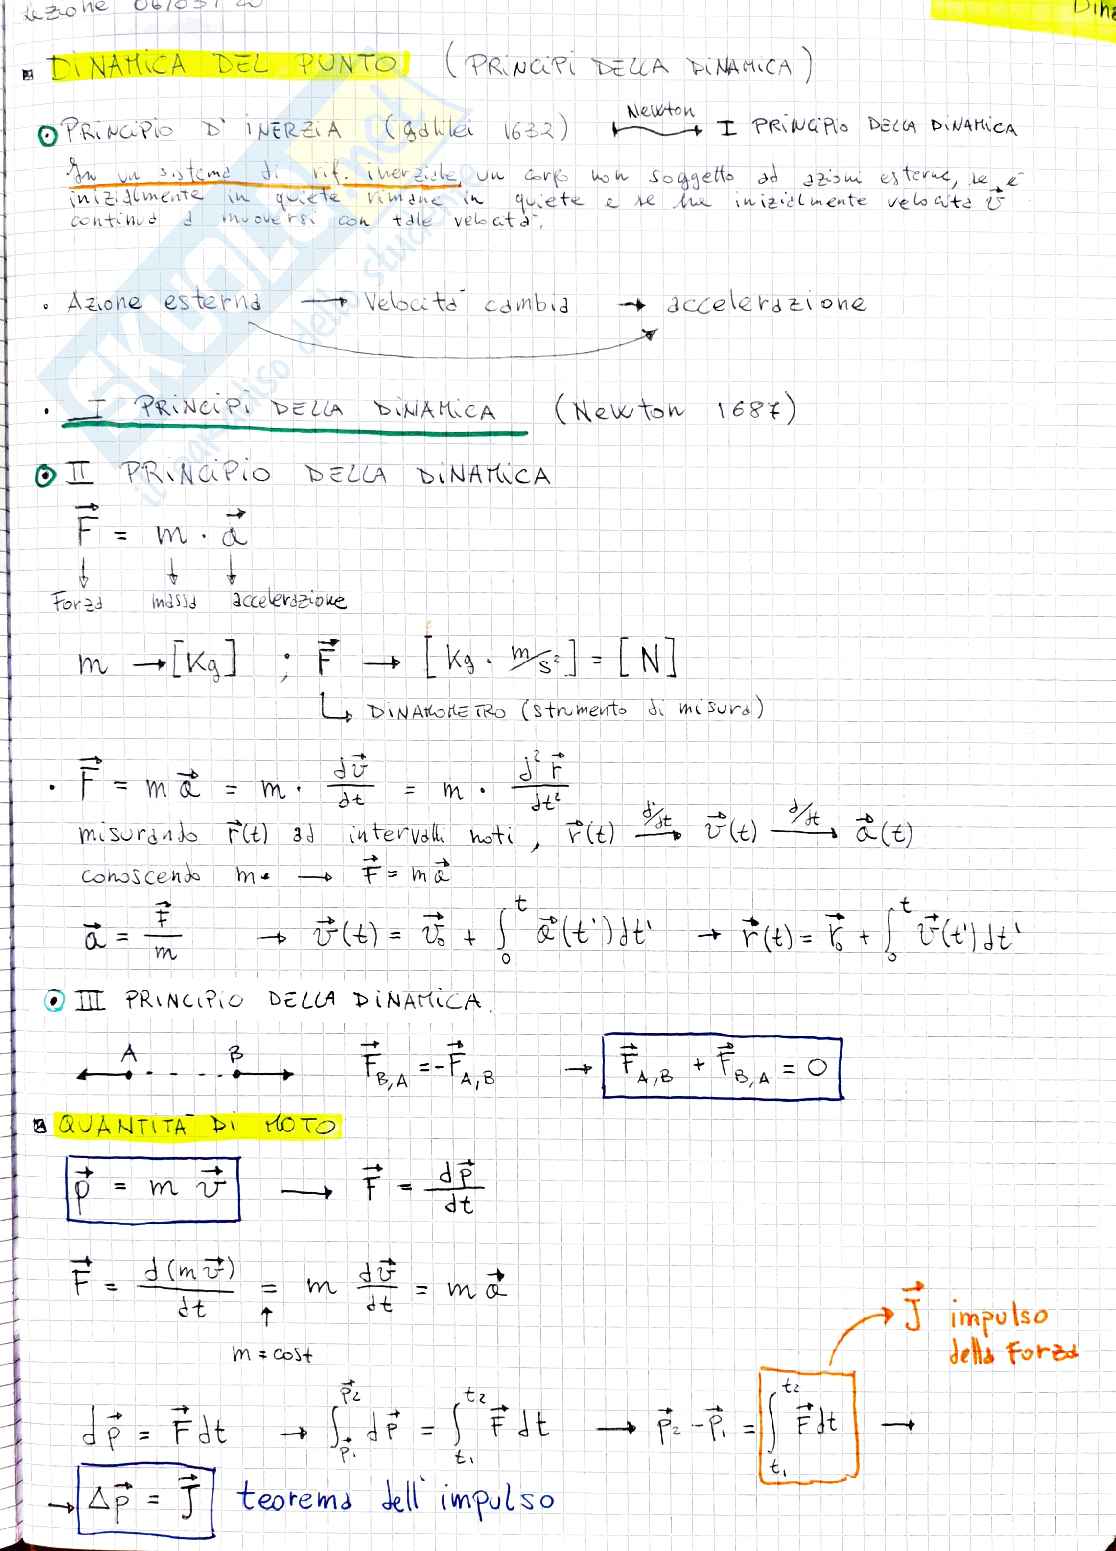 Lezione 06/03/20
Dina
DINAMICA DEL PUNTO (PRINCIPI DELLA DINAMICA)
PRINCIPIO D'INERZIA (Galilei 1632) Newton ⟷ I PRINCIPIO DELLA DINAMICA
In un sistema di rif. inerziale, un corpo non soggetto ad azioni esterne, se è
inizialmente in quiete rimane in quiete e se ha inizialmente velocità v⃗
continua a muoversi con tale velocità.
· Azione esterna → Velocità cambia → accelerazione
· I PRINCIPI DELLA DINAMICA (Newton 1687)
II PRINCIPIO DELLA DINAMICA
F⃗ = m · a⃗
↓ ↓ ↓
Forza massa accelerazione
m → [Kg] ; F⃗ → [Kg · m/s²] = [N]
↳ DINAMOMETRO (strumento di misura)
· F⃗ = m a⃗ = m · dv⃗/dt = m · d²r⃗/dt²
misurando r⃗(t) ad intervalli noti, r⃗(t) d/dt → v⃗(t) d/dt → a⃗(t)
conoscendo m → F⃗ = m a⃗
a⃗ = F⃗/m → v⃗(t) = v⃗₀ + ∫₀ᵗ a⃗(t')dt' → r⃗(t) = r⃗₀ + ∫₀ᵗ v⃗(t')dt'
III PRINCIPIO DELLA DINAMICA
A B F⃗B,A = -F⃗A,B → F⃗A,B + F⃗B,A = 0
QUANTITÀ DI MOTO
p⃗ = m v⃗ → F⃗ = dp⃗/dt
F⃗ = d(m v⃗)/dt = m dv⃗/dt = m a⃗
↑
m = cost
J⃗ impulso
della Forza
dp⃗ = F⃗ dt → ∫p⃗₁^p⃗₂ dp⃗ = ∫t₁^t₂ F⃗ dt → p⃗₂ - p⃗₁ = ∫t₁^t₂ F⃗ dt →
→ Δp⃗ = J⃗ teorema dell'impulso
SKUOLA.net
il paradiso dello studente